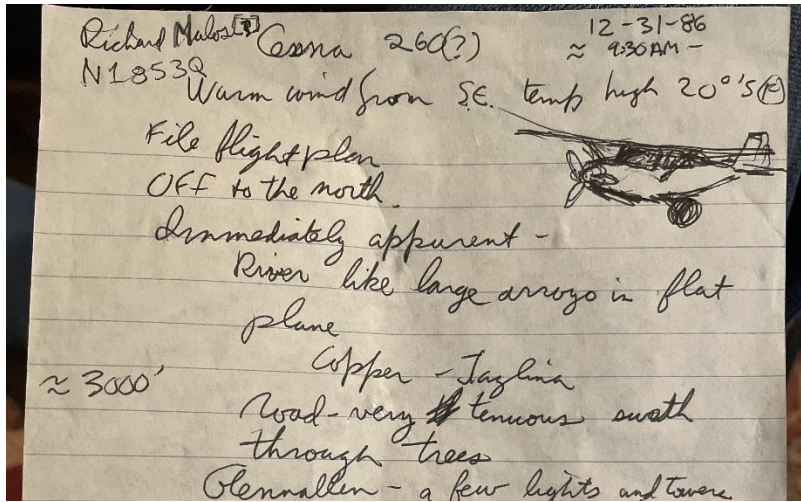 Richard Malos [?] Cessna 260(?)
12-31-86
≈ 9:30 AM -
N1853Q
Warm wind from S.E. temp high 20°'s (F)
File flight plan
Off to the north.
Immediately apparent -
River like large arroyo in flat
plane
Copper - Tazlina
≈ 3000'
Road - very tenuous swath
through trees
Glennallen - a few lights and towers